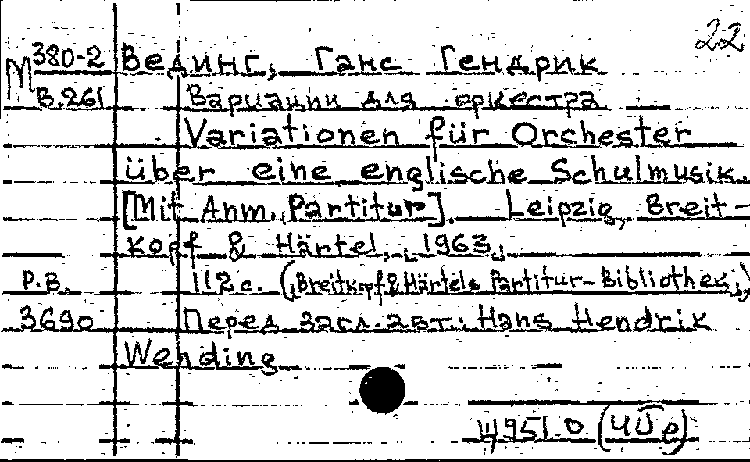 22
М 380-2 Вединг, Ганс Гендрик
В.261 Вариации для оркестра
Variationen für Orchester
über eine englische Schulmusik.
[Mit Anm. Partitur]. Leipzig, Breit-
kopf & Härtel, 1963.
P.B. 112 с. (Breitkopf & Härtels Partitur-Bibliothek,)
3690 Перед загл. авт.: Hans Hendrik
Wehding